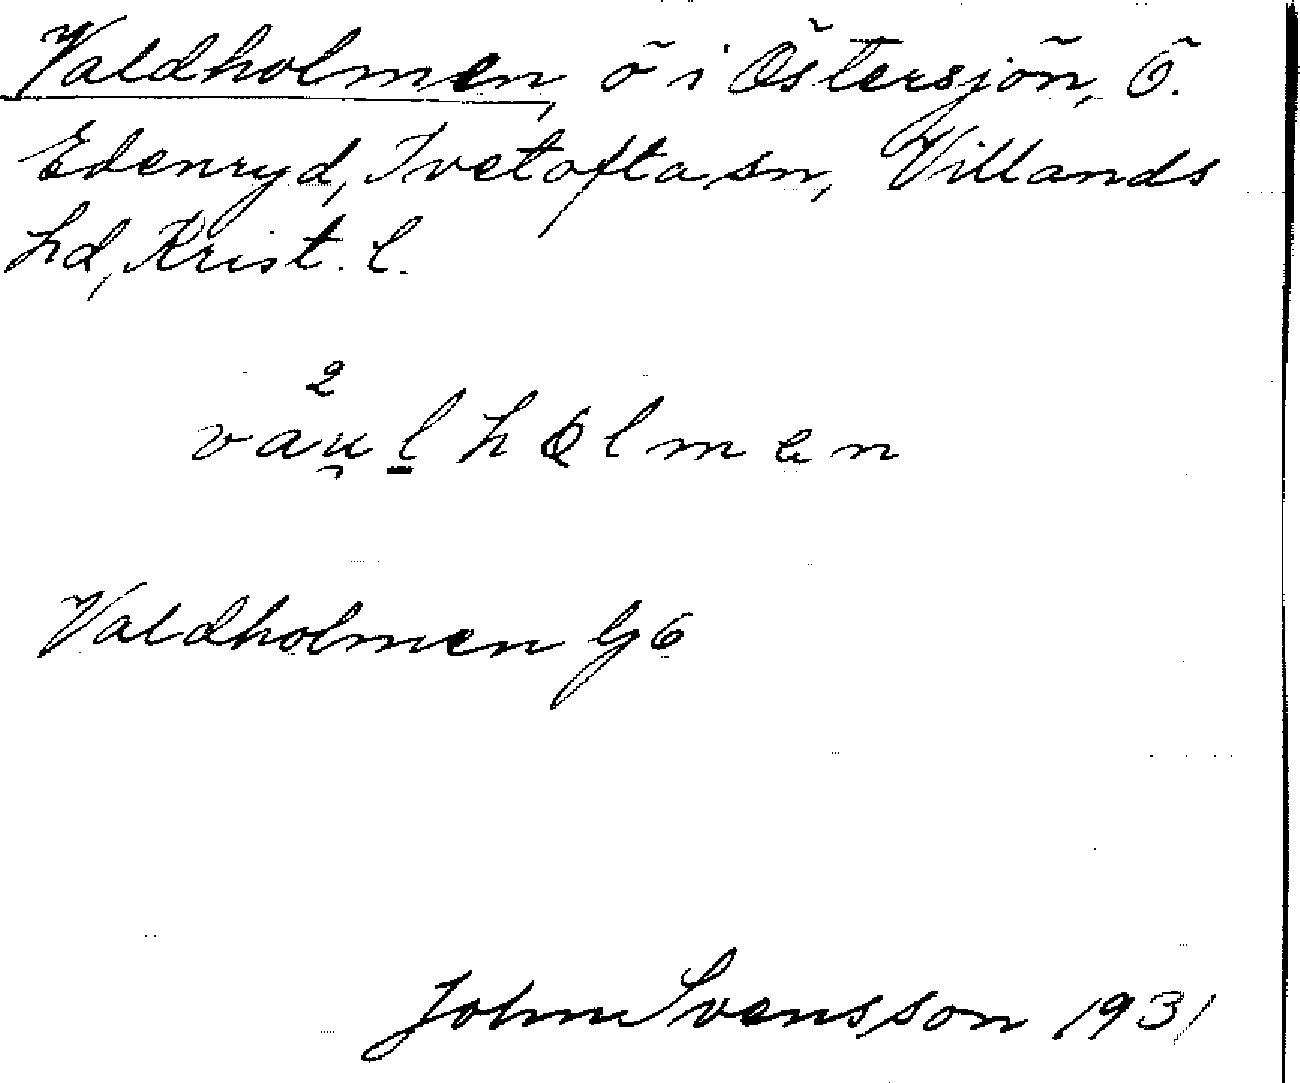 Valdholmen, ö i Östersjön, Ö.
Edenryd, Ivetofta sn, Villands
hd, Krist. l.
2
vau̯lholmen
Valdholmen G6
John Svensson 1931